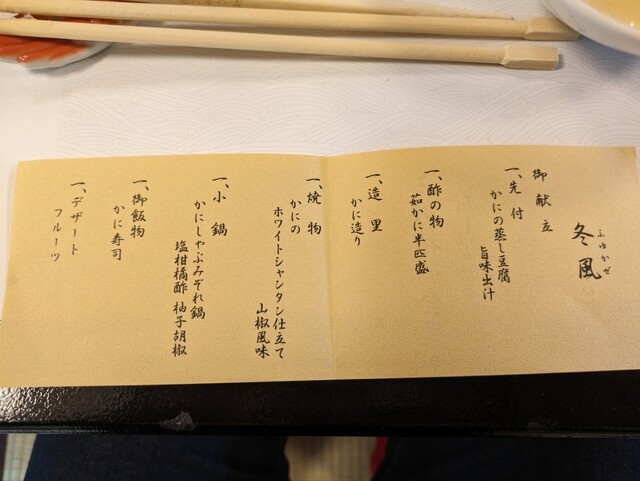 冬風
ふゆかぜ
御献立
一、先付
かにの蒸し豆腐
旨味出汁
一、酢の物
茹かに半匹盛
一、造里
かに造り
一、焼物
かにの
ホワイトシャンタン仕立て
山椒風味
一、小鍋
かにしゃぶみぞれ鍋
塩柑橘酢 柚子胡椒
一、御飯物
かに寿司
一、デザート
フルーツ